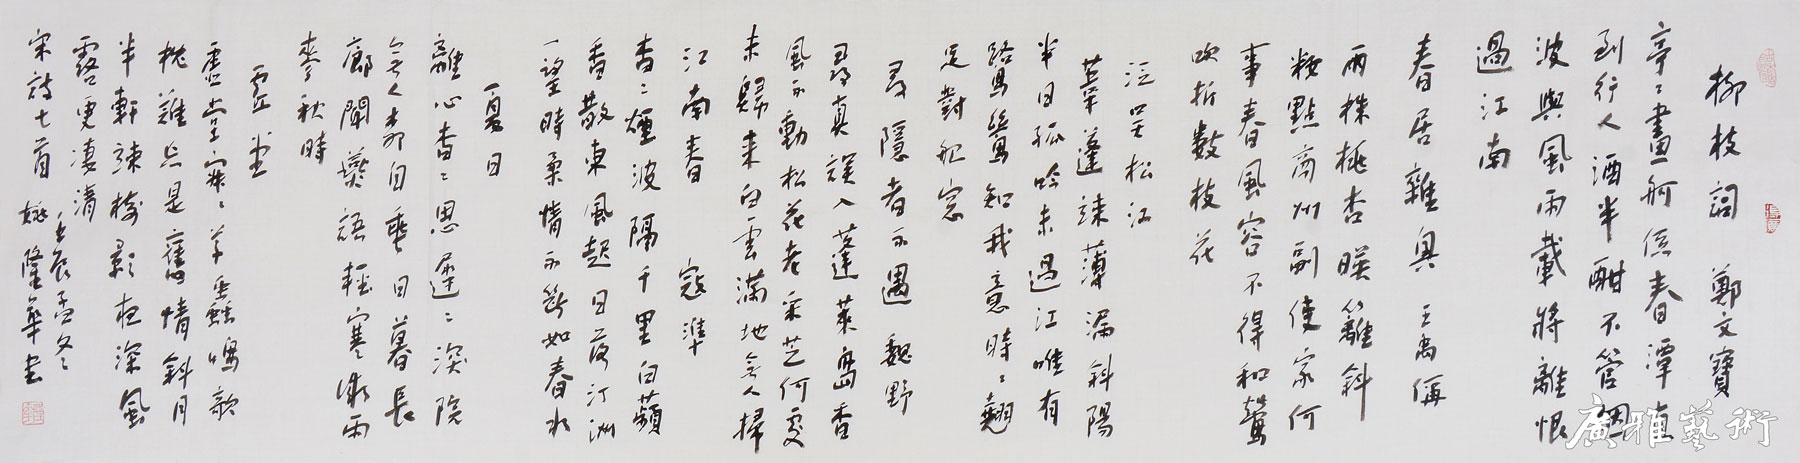 柳枝詞 鄭文寶
亭〻畫舸係春潭直
到行人酒半酣不管烟
波與風雨載將離恨
過江南
春居雜興 王禹偁
兩株桃杏映籬斜
妝點商州副使家何
事春風容不得和鶯
吹折數枝花
泛吳松江
葦蓬疎薄漏斜陽
半日孤吟未過江唯有
鷺鷥知我意時〻翹
足對船窓
尋隱者不遇 魏野
尋真誤入蓬萊島香
風不動松花老采芝何處
未歸來白雲滿地無人掃
江南春 寇準
杳〻煙波隔千里白蘋
香散東風起日落汀洲
一望時柔情不斷如春水
夏日
離心杳〻思遲〻深院
無人柳自垂日暮長
廊聞燕語輕寒微雨
麥秋時
虛堂
虛堂寂〻草蟲鳴欹
枕難忘是舊情斜月
半軒疎樹影夜深風
露更淒清
壬辰孟冬
宋詩七首 姚隆華書
廣雅藝術